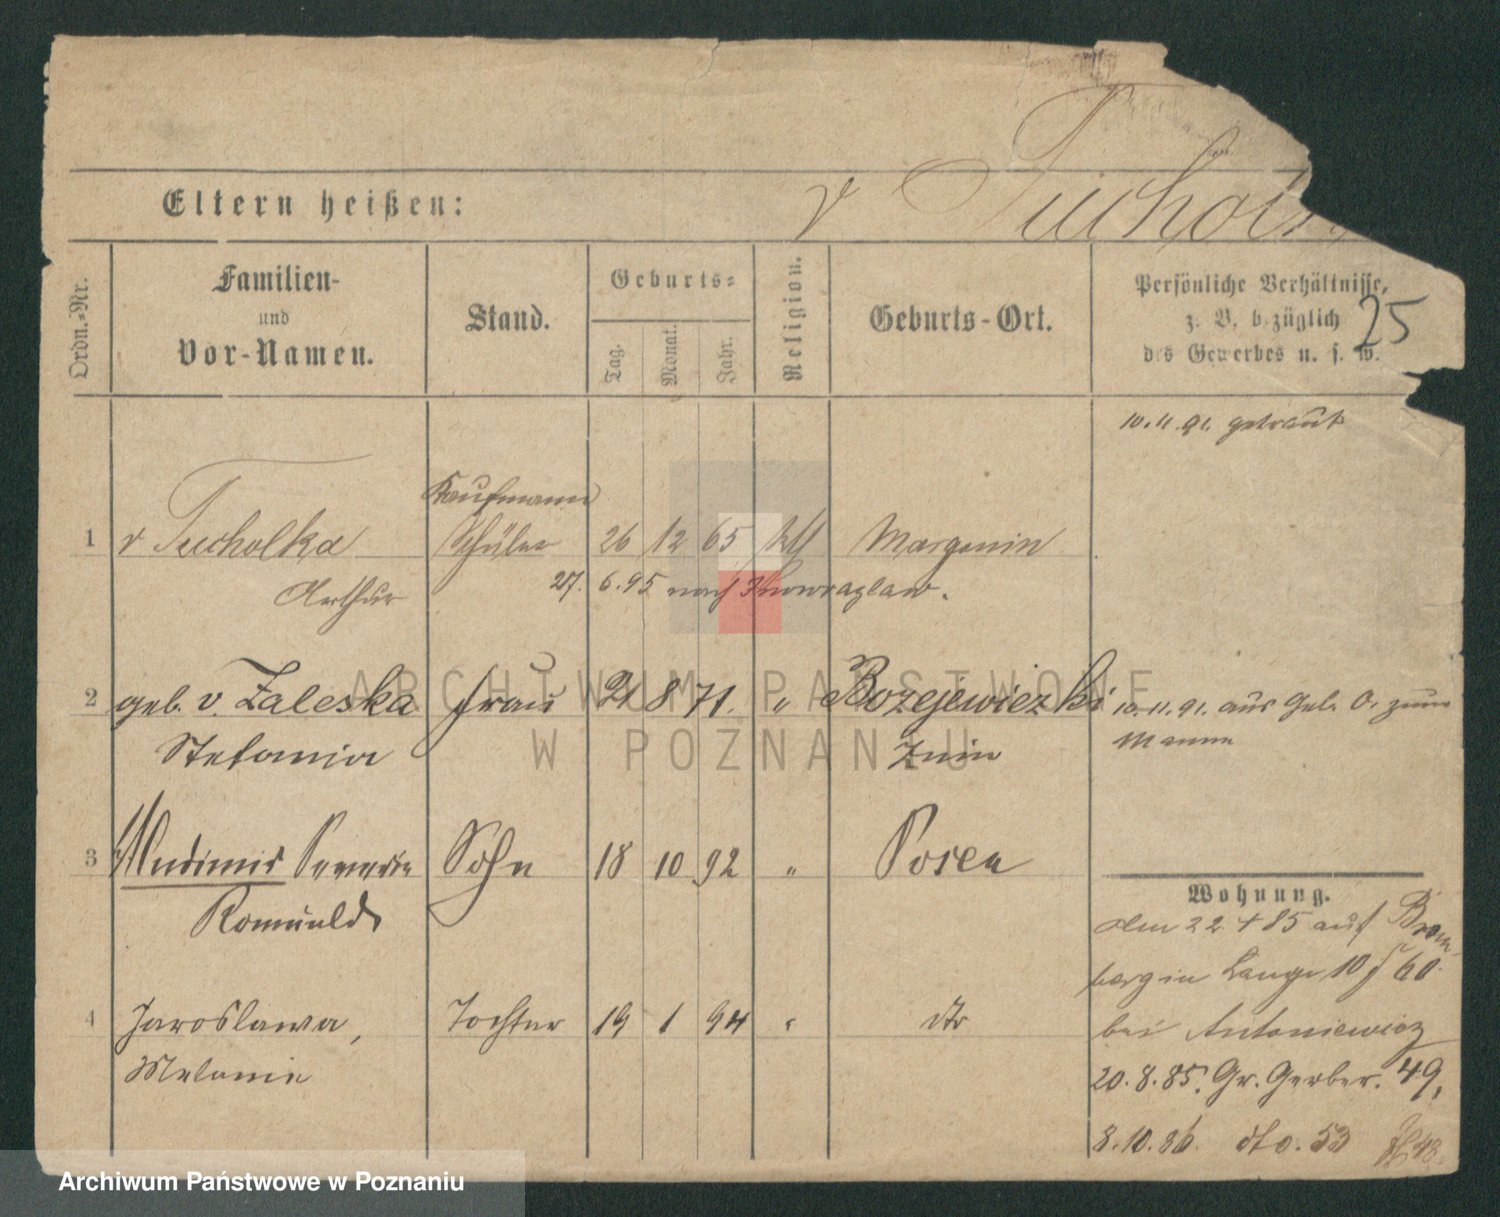 Eltern heißen:
v Tucholka
Ordn.-Nr.
Familien-
und
Vor-Namen.
Stand.
Geburts-
Tag.
Monat.
Jahr.
Religion.
Geburts-Ort.
Persönliche Verhältnisse,
z. B. bezüglich
des Gewerbes u. s. w.
25
10.11.91. getraut
Kaufmann
1 v Tucholka Schüler 26 12 65 Margonin
Arthur 27. 6.95 nach Inowrazlaw.
2 geb. v. Zaleska Frau 21 8 71. " Bozejewiczki 10.11.91. aus Geb. O. zum
Stefania Znin Mann
3 Wladimir Severin Sohn 18 10 92 " Posen
Romuald
4 Jaroslawa, Tochter 19 1 94 " dto
Melanie
Wohnung.
den 22 4 85 auf Brom-
berg in Lange 10 60
bei Antoniewicz
20.8.85. Gr. Gerber. 49,
8.10.86. dto. 53
ARCHIWUM PAŃSTWOWE
W POZNANIU
Archiwum Państwowe w Poznaniu